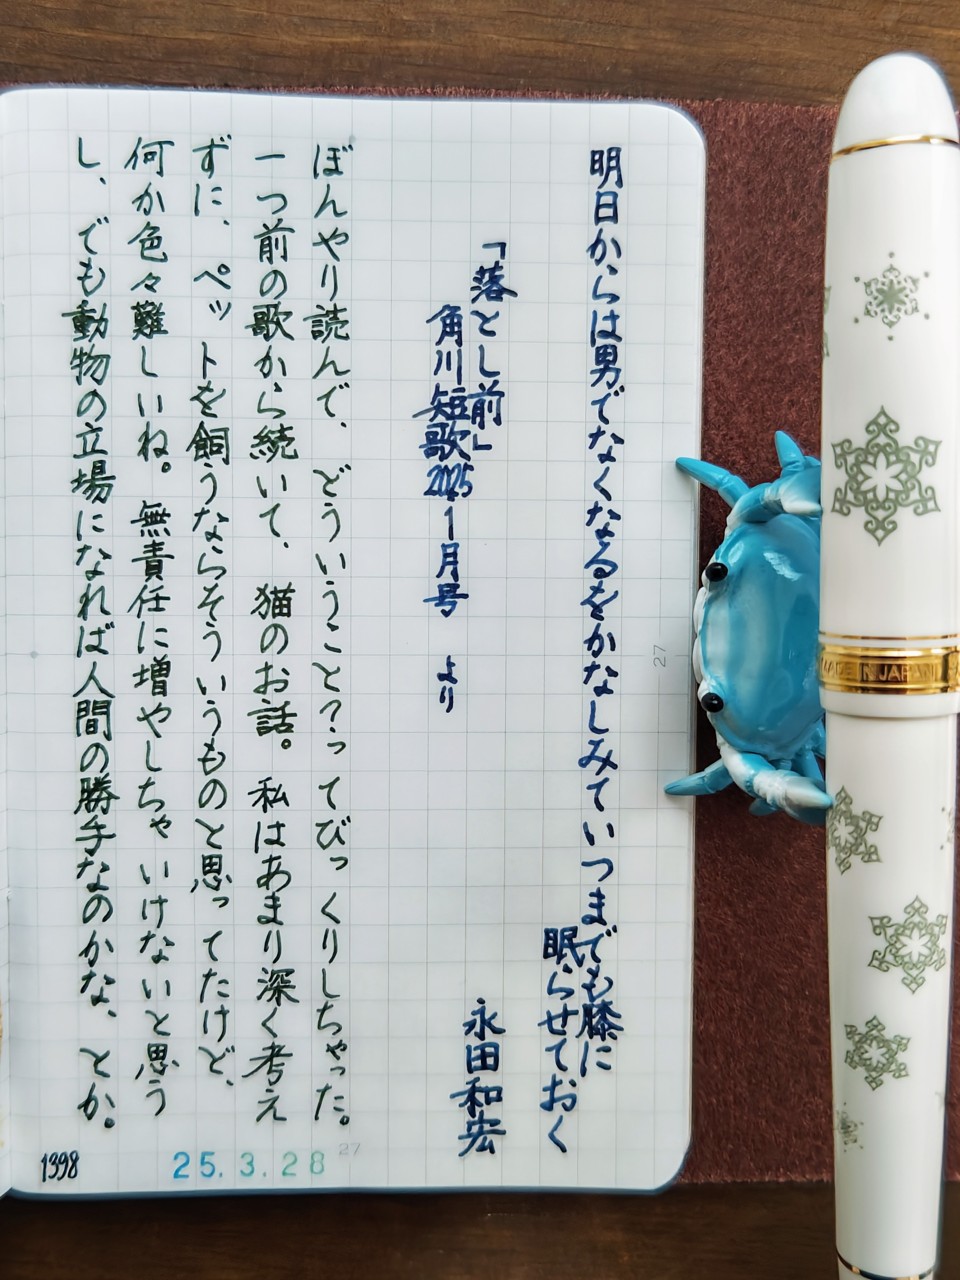 明日からは男でなくなるをかなしみていつまでも膝に
眠らせておく
「落とし前」
角川短歌2025.1月号 より
永田和宏
ぼんやり読んで、どういうこと?ってびっくりしちゃった。
一つ前の歌から続いて、猫のお話。私はあまり深く考え
ずに、ペットを飼うならそういうものと思ってたけど、
何か色々難しいね。無責任に増やしちゃいけないと思う
し、でも動物の立場になれば人間の勝手なのかな、とか。
1398
25.3.28
27
27
MADE IN JAPAN